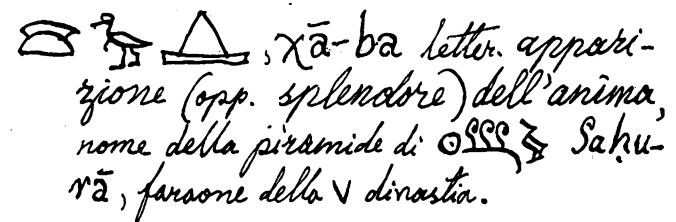 𓈍𓅡𓉴, χā-ba letter. appari-
zione (opp. splendore) dell'anima,
nome della piramide di 𓇳𓃃𓅱 Saḥu-
rā, faraone della V dinastia.